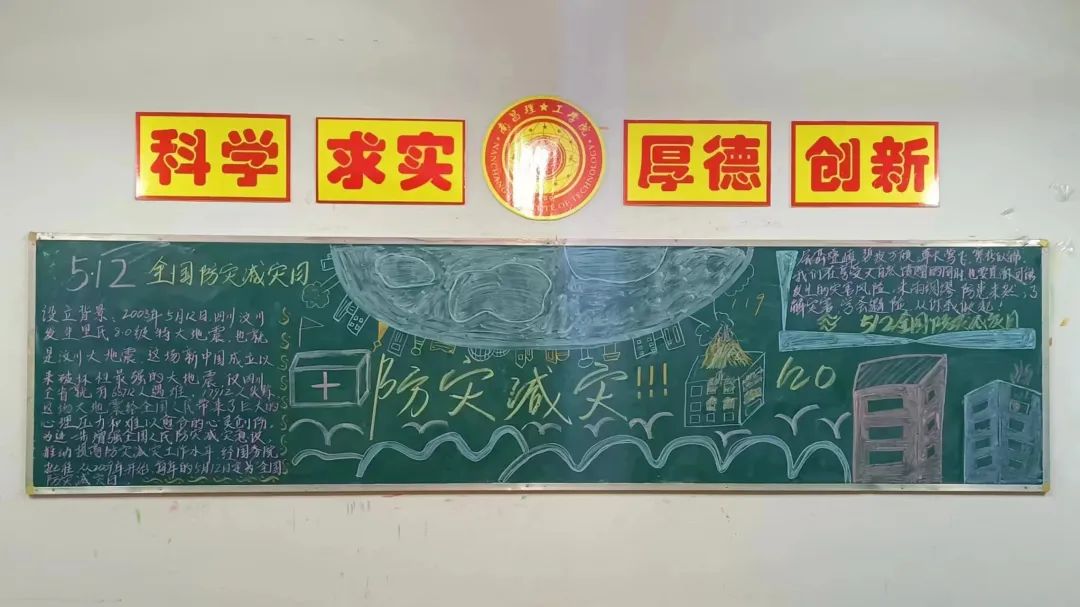 科学
求实
南昌理工学院
NANCHANG INSTITUTE OF TECHNOLOGY
厚德
创新
5·12 全国防灾减灾日
设立背景、2008年5月12日四川汶川
发生里氏8.0级特大地震,也就
是汶川大地震,这场新中国成立以
来破坏性最强的大地震,仅四川
全省就有
这场大地震给全国人民带来了巨大的
心理压力和难以愈合的心灵创伤,
为进一步增强全国人民防灾减灾意识,
推动提高防灾减灾工作水平 经国务院
批准,从2009年开始,每年的5月12日定为全国
防灾减灾日
防灾减灾!!!
119
120
我们在享受大自然 的同时 也要
发生的灾害风险,未雨绸缪 防患未然,了
解灾害,学会避险,从 做起
5·12全国防灾减灾日